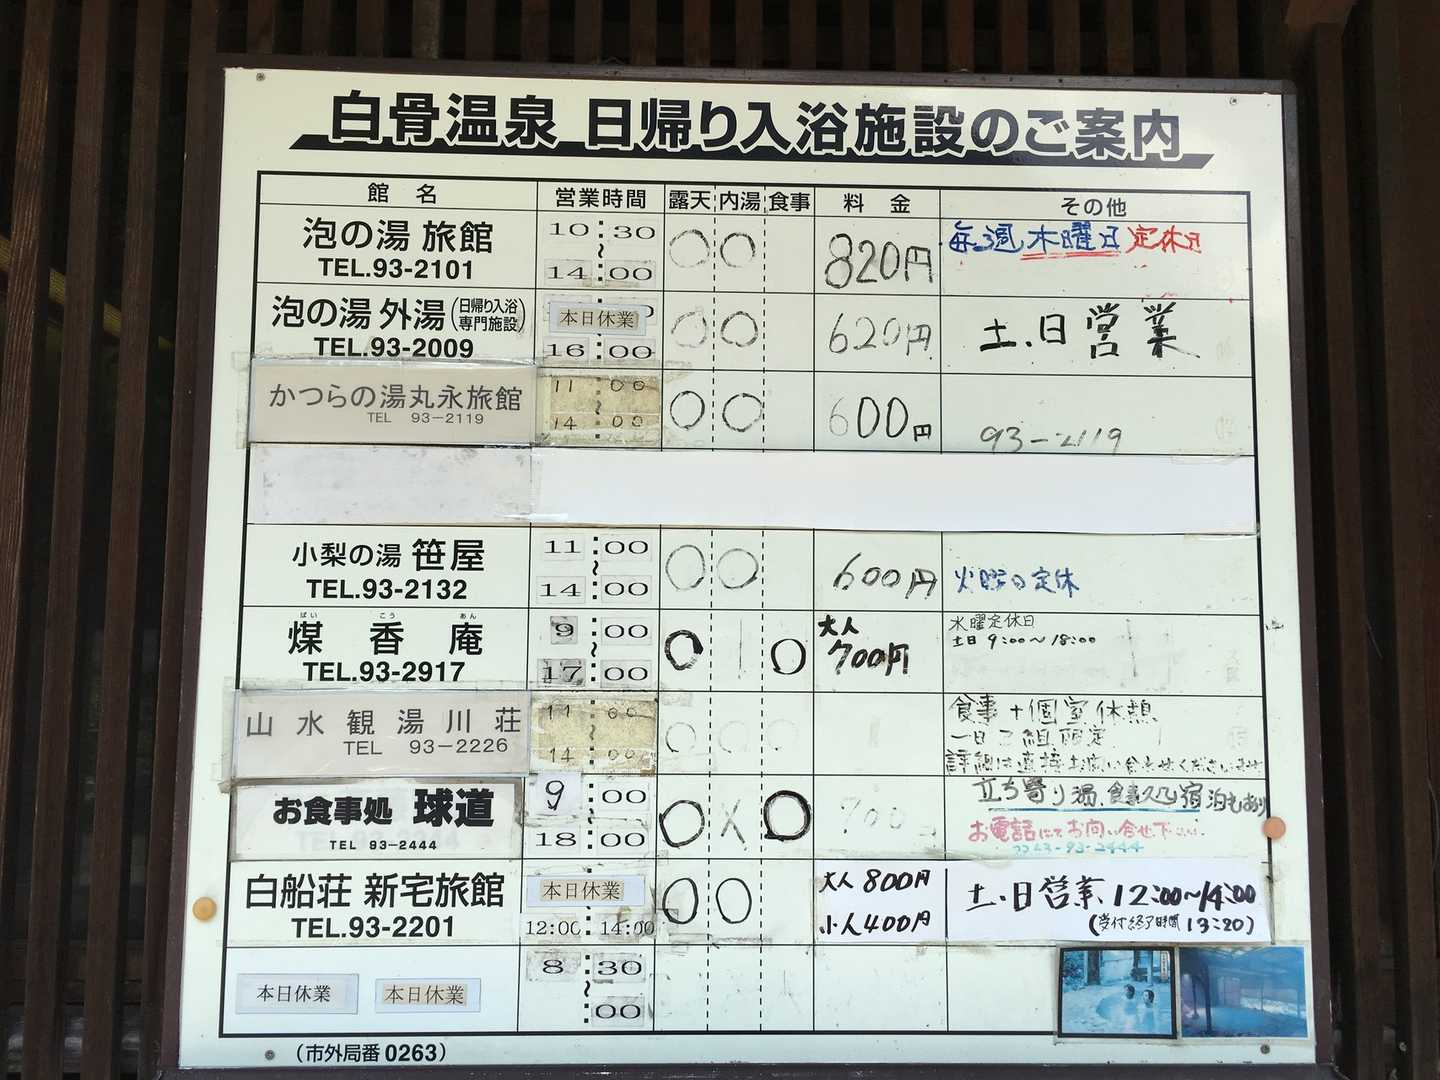 白骨温泉 日帰り入浴施設のご案内
館 名 営業時間 露天 内湯 食事 料 金 その他
泡の湯 旅館
TEL.93-2101
10:30
~
14:00
○ ○
820円
毎週木曜日定休日
泡の湯 外湯(日帰り入浴専門施設)
TEL.93-2009
本日休業
16:00
○ ○
620円
土.日営業
かつらの湯丸永旅館
TEL 93-2119
11:00
~
14:00
○ ○
600円
93-2119
小梨の湯 笹屋
TEL.93-2132
11:00
~
14:00
○ ○
600円
火曜日定休
ばい こう あん
煤 香 庵
TEL.93-2917
9:00
~
17:00
○ ○
大人
700円
水曜定休日
土日 9:00~18:00
山水観湯川荘
TEL 93-2226
11:00
~
14:00
○ ○ ○
食事+個室休憩
一日 組限定
詳細は直接お問い合わせくださいませ
お食事処 球道
TEL 93-2444
9:00
~
18:00
○ × ○
700
立ち寄り湯、食事処、宿泊もあり
お電話にてお問い合せ下さい
0263-93-2444
白船荘 新宅旅館
TEL.93-2201
本日休業
12:00:14:00
○ ○
大人 800円
小人 400円
土.日営業 12:00~14:00
(受付終了時間 13:20)
本日休業 本日休業
8:30
~
:00
(市外局番 0263)